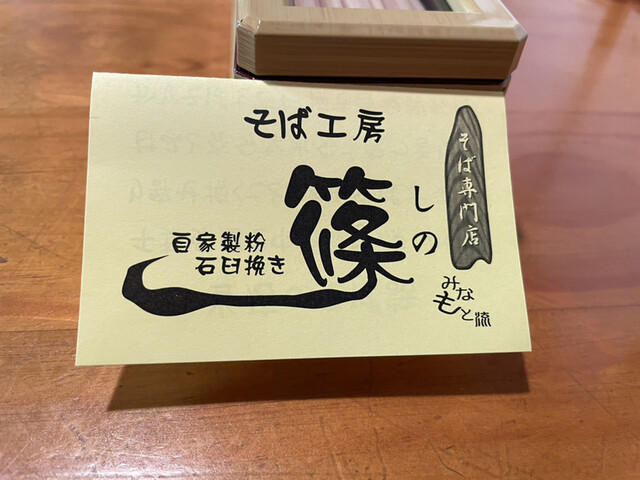 そば工房
篠
しの
自家製粉
石臼挽き
そば専門店
みなもと流